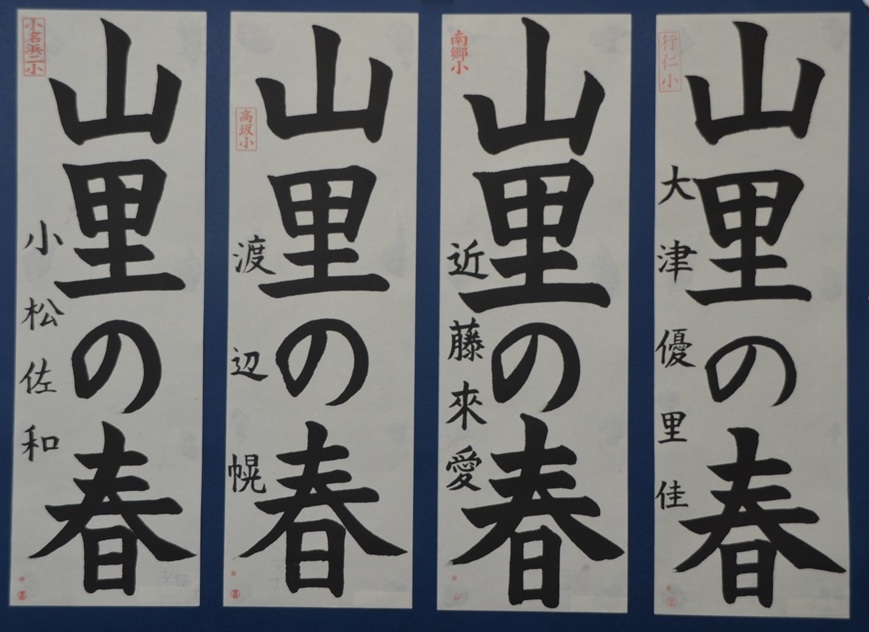 行仁小
山里の春
大津優里佳
南郷小
山里の春
近藤來愛
高坂小
山里の春
渡辺幌
小名浜二小
山里の春
小松佐和